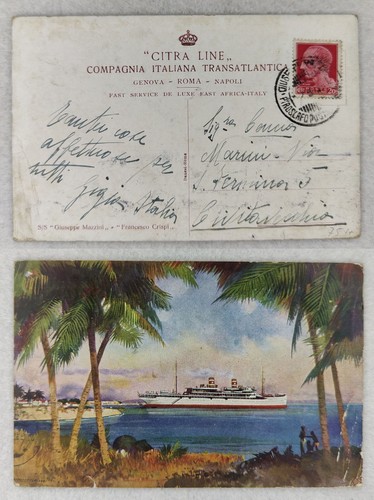 "CITRA LINE"
COMPAGNIA ITALIANA TRANSATLANTICA
GENOVA - ROMA - NAPOLI
FAST SERVICE DE LUXE EAST AFRICA-ITALY
Tante cose
affettuose per
tutti
Gigia Italia
Marini - Via
Civitavecchia
S/S "Giuseppe Mazzini" - "Francesco Crispi"